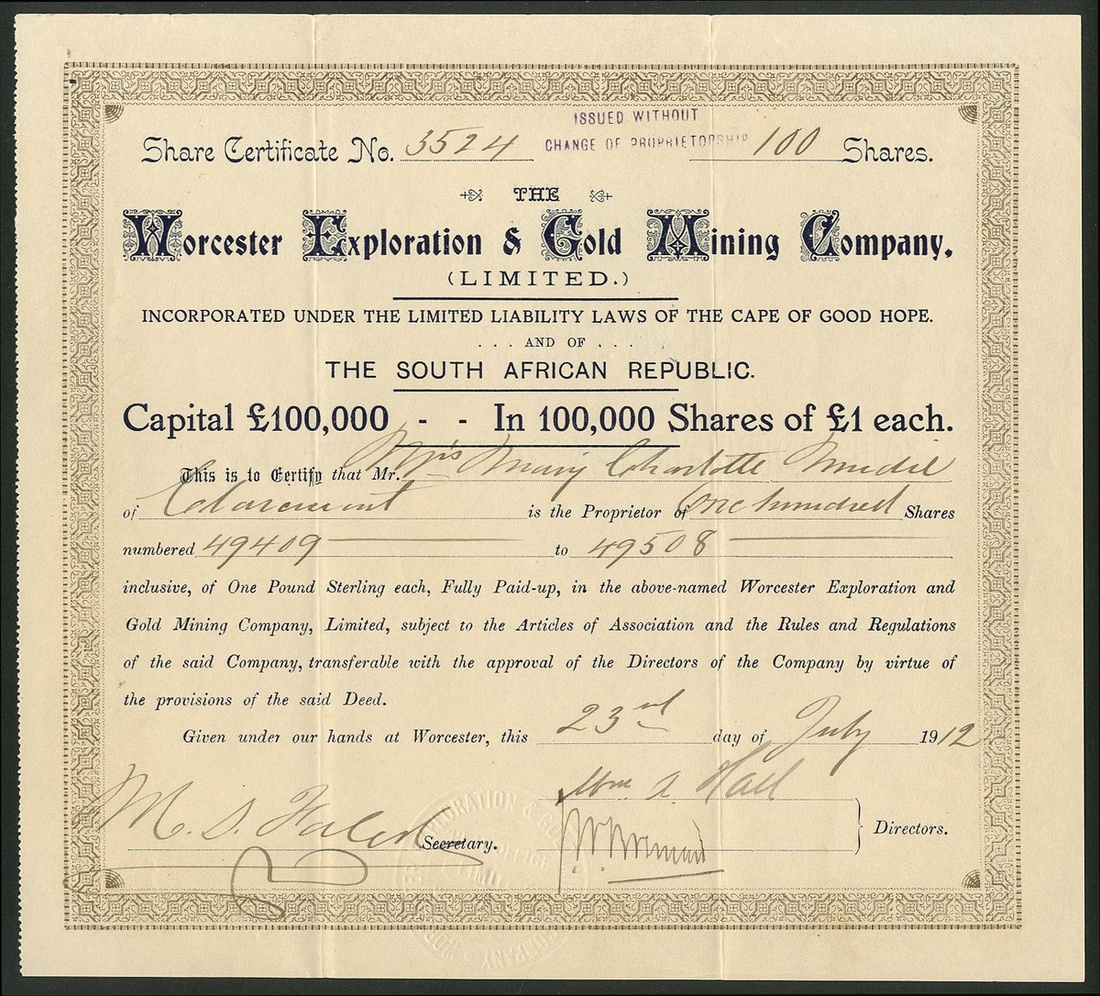 ISSUED WITHOUT
CHANGE OF PROPRIETORSHIP
Share Certificate No. 3524 100 Shares.
THE
Worcester Exploration & Gold Mining Company,
(LIMITED.)
INCORPORATED UNDER THE LIMITED LIABILITY LAWS OF THE CAPE OF GOOD HOPE.
... AND OF ...
THE SOUTH AFRICAN REPUBLIC.
Capital £100,000 - - In 100,000 Shares of £1 each.
This is to Certify that Mr. Mrs Mary Charlotte Mudie
of Claremont is the Proprietor of One hundred Shares
numbered 49409 to 49508
inclusive, of One Pound Sterling each, Fully Paid-up, in the above-named Worcester Exploration and
Gold Mining Company, Limited, subject to the Articles of Association and the Rules and Regulations
of the said Company, transferable with the approval of the Directors of the Company by virtue of
the provisions of the said Deed.
Given under our hands at Worcester, this 23rd day of July 1912
Wm. A. Hall
M. S. Secretary.
Directors.